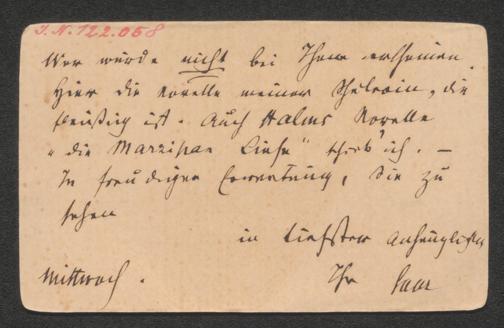 I.N. 122.058
Wer würde nicht bei Ihnen erscheinen.
Hier die Novelle meiner, die
fleißig ist. Auch Halms Novelle
"die Marzipan Liese" schick' ich. —
In freudiger Erwartung, Sie zu
sehen
in tiefster Anhänglichkeit
Mittwoch. Ihr Saar